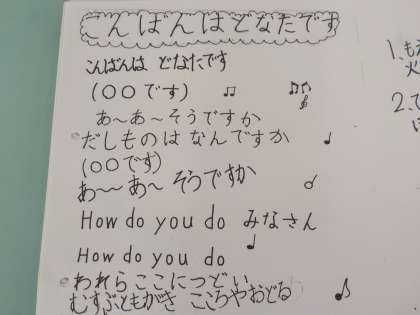 こんばんはどなたです
こんばんは どなたです
(○○です)
あ〜あ〜そうですか
だしものは なんですか
(○○です)
あ〜〜 あ〜 そうですか
How do you do みなさん
How do you do
われらここにつどい
むすぶともがき こころやおどる
1、もえ
火
2、て